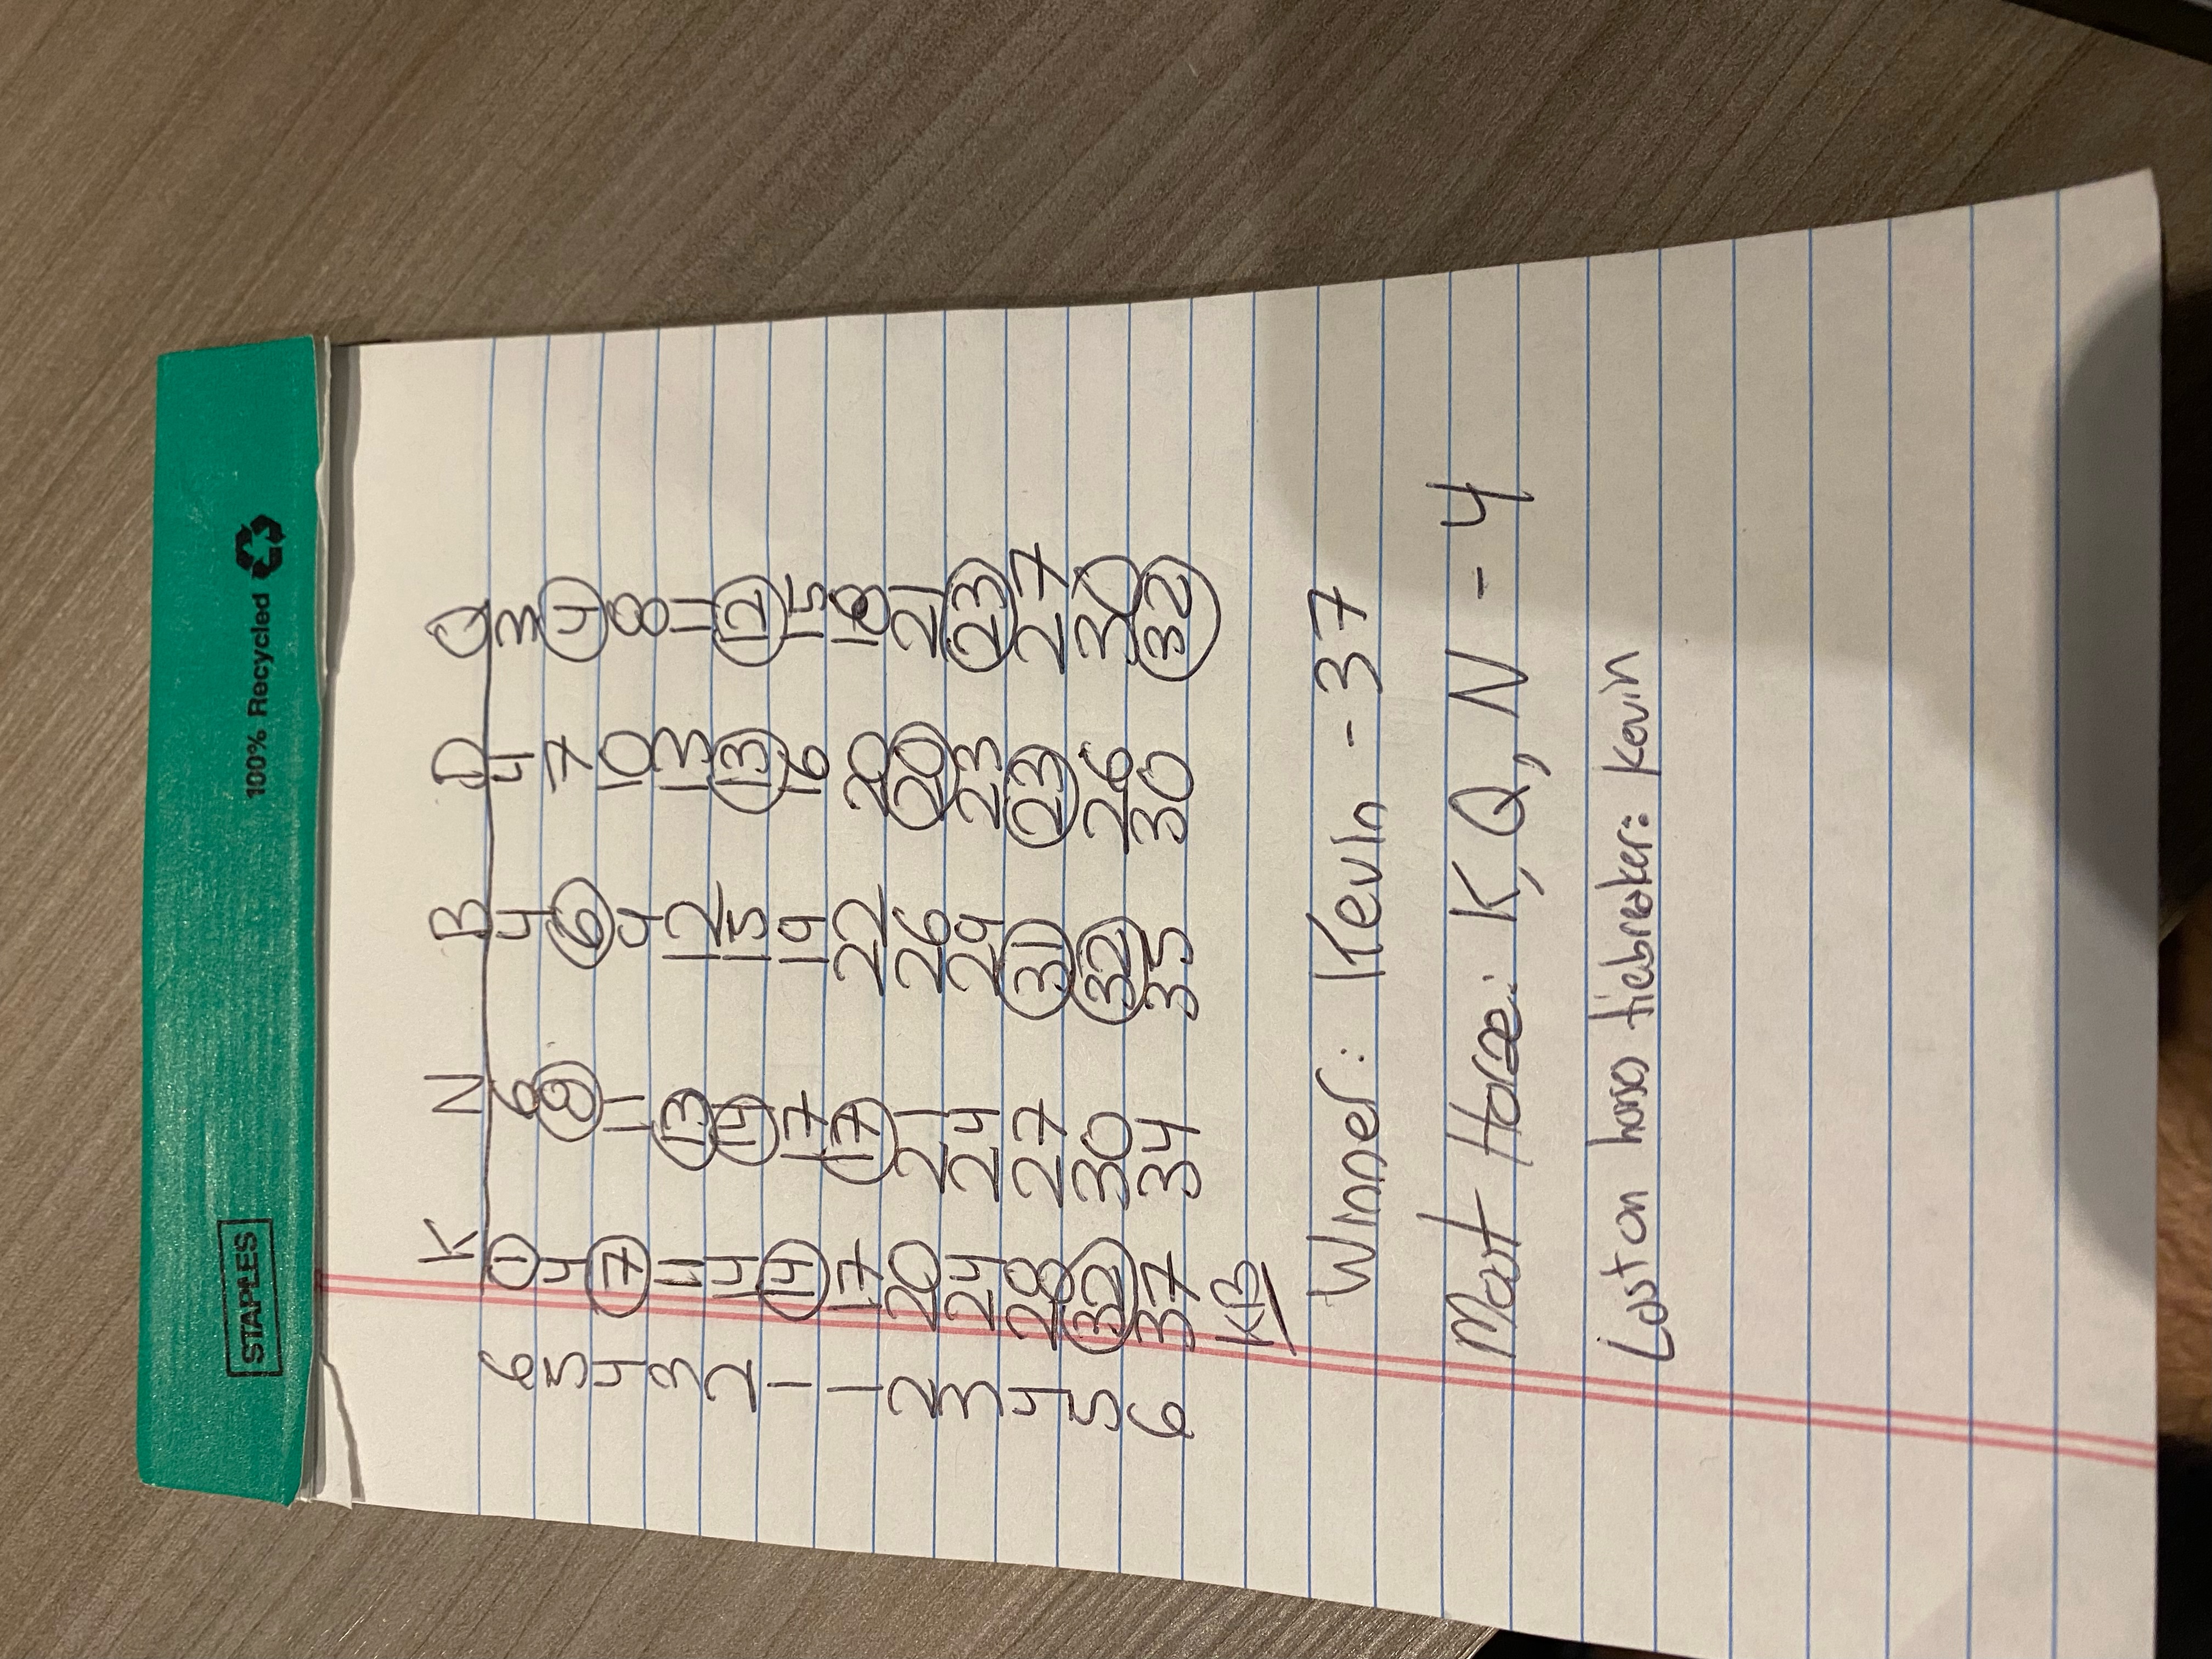 STAPLES 100% Recycled
K N B D Q
6 1 6 4 4 3
5 4 8 6 7 4
4 7 11 9 10 8
3 11 13 12 13 11
2 14 14 15 13 12
1 14 17 19 16 15
1 17 17 22 20 18
2 20 21 26 20 21
3 24 24 29 23 23
4 28 27 31 23 27
5 32 30 32 26 30
6 37 34 35 30 32
KB
Winner: Kevin - 37
Most Horse: K, Q, N - 4
Lost on horses tiebreaker: Kevin